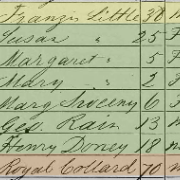 Franzn Little 30 m
Susan " 25 F
Margaret " 5 F
Mary " 2 F
Marg Sweeny 6 F
Geo. Rain 13 m
Henry Doney 18 m
Royal Collard 70 m